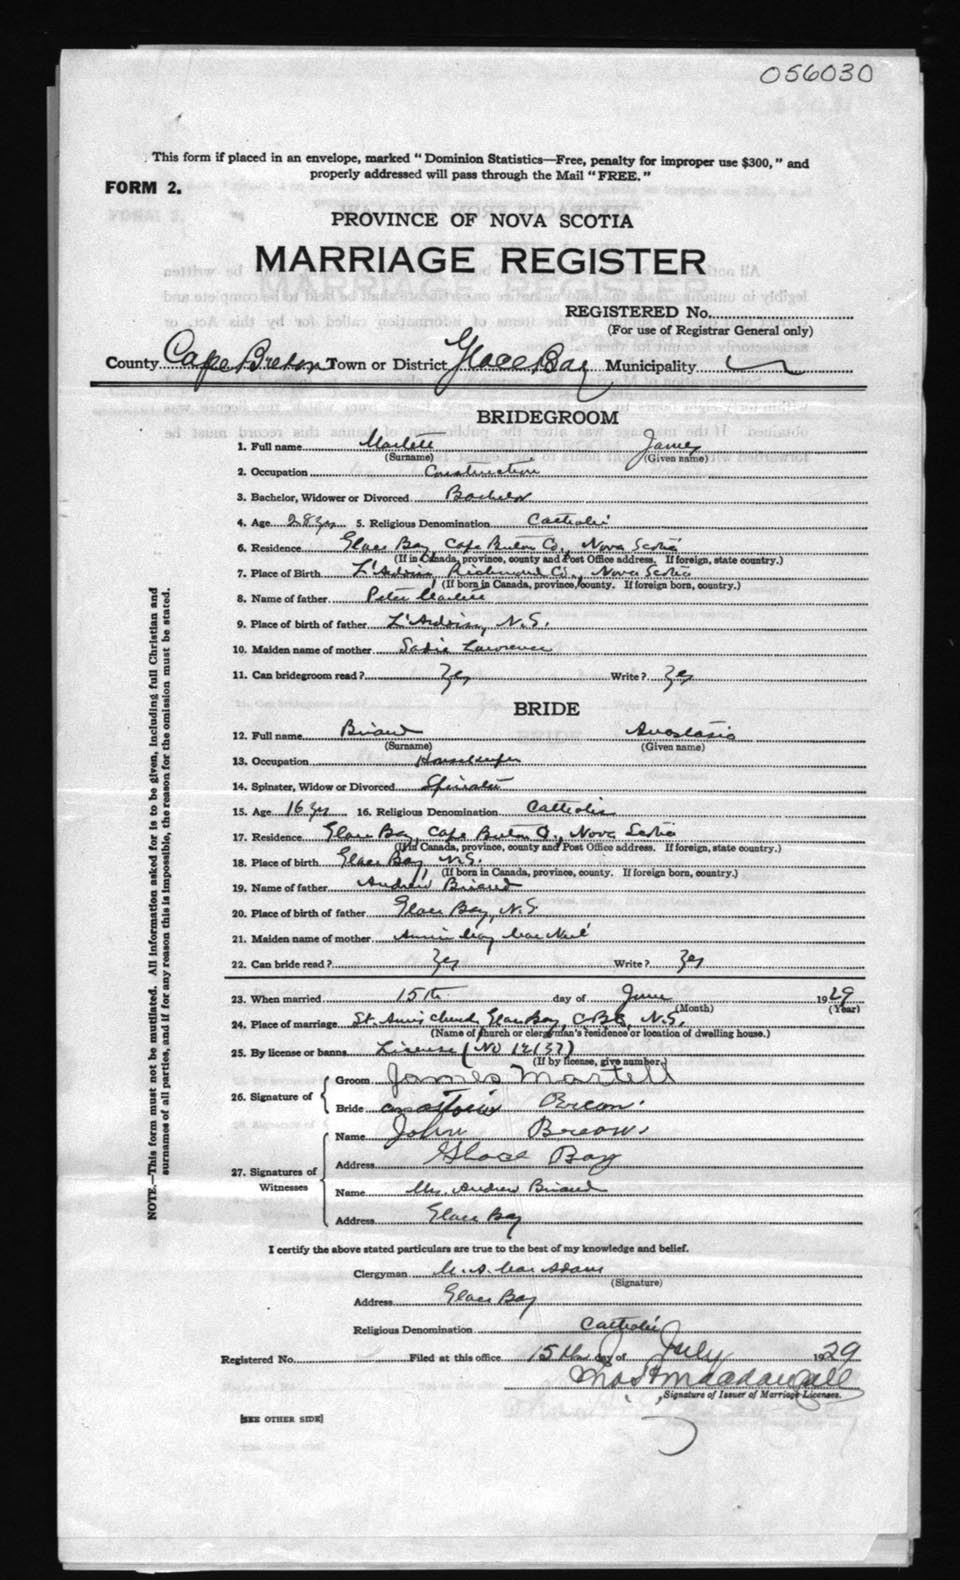 056030
This form if placed in an envelope, marked "Dominion Statistics—Free, penalty for improper use $300," and
properly addressed will pass through the Mail "FREE."
FORM 2.
PROVINCE OF NOVA SCOTIA
MARRIAGE REGISTER
REGISTERED No.
(For use of Registrar General only)
County Cape Breton Town or District Glace Bay Municipality
BRIDEGROOM
1. Full name Martell James
(Surname) (Given name)
2. Occupation Construction
3. Bachelor, Widower or Divorced Bachelor
4. Age 28 yrs 5. Religious Denomination Catholic
6. Residence Glace Bay, Cape Breton Co., Nova Scotia
(If in Canada, province, county and Post Office address. If foreign, state country.)
7. Place of Birth L'Ardoise Richmond Co., Nova Scotia
(If born in Canada, province, county. If foreign born, country.)
8. Name of father Peter Martell
9. Place of birth of father L'Ardoise, N.S.
10. Maiden name of mother Sadie Lawrence
11. Can bridegroom read? Yes Write? Yes
BRIDE
12. Full name Briand Anastasia
(Surname) (Given name)
13. Occupation Housekeeper
14. Spinster, Widow or Divorced Spinster
15. Age 16 yrs 16. Religious Denomination Catholic
17. Residence Glace Bay, Cape Breton Co., Nova Scotia
(If in Canada, province, county and Post Office address. If foreign, state country.)
18. Place of birth Glace Bay, N.S.
(If born in Canada, province, county. If foreign born, country.)
19. Name of father Andrew Briand
20. Place of birth of father Glace Bay, N.S.
21. Maiden name of mother Annie May MacNeil
22. Can bride read? Yes Write? Yes
23. When married 15th day of June 1929
(Month) (Year)
24. Place of marriage St. Anne's Church, Glace Bay, C.B., N.S.
(Name of church or clergyman's residence or location of dwelling house.)
25. By license or banns License (No 12137)
(If by license, give number.)
26. Signature of
Groom James Martell
Bride Breon
27. Signatures of Witnesses
Name John Breow
Address Glace Bay
Name Mrs. Andrew Briand
Address Glace Bay
I certify the above stated particulars are true to the best of my knowledge and belief.
Clergyman M. A. MacAdam
(Signature)
Address Glace Bay
Religious Denomination Catholic
Registered No. Filed at this office 15th day of July 1929
Signature of Issuer of Marriage Licenses.
[SEE OTHER SIDE]
NOTE.—This form must not be mutilated. All information asked for is to be given, including full Christian and
surnames of all parties, and if for any reason this is impossible, the reason for the omission must be stated.